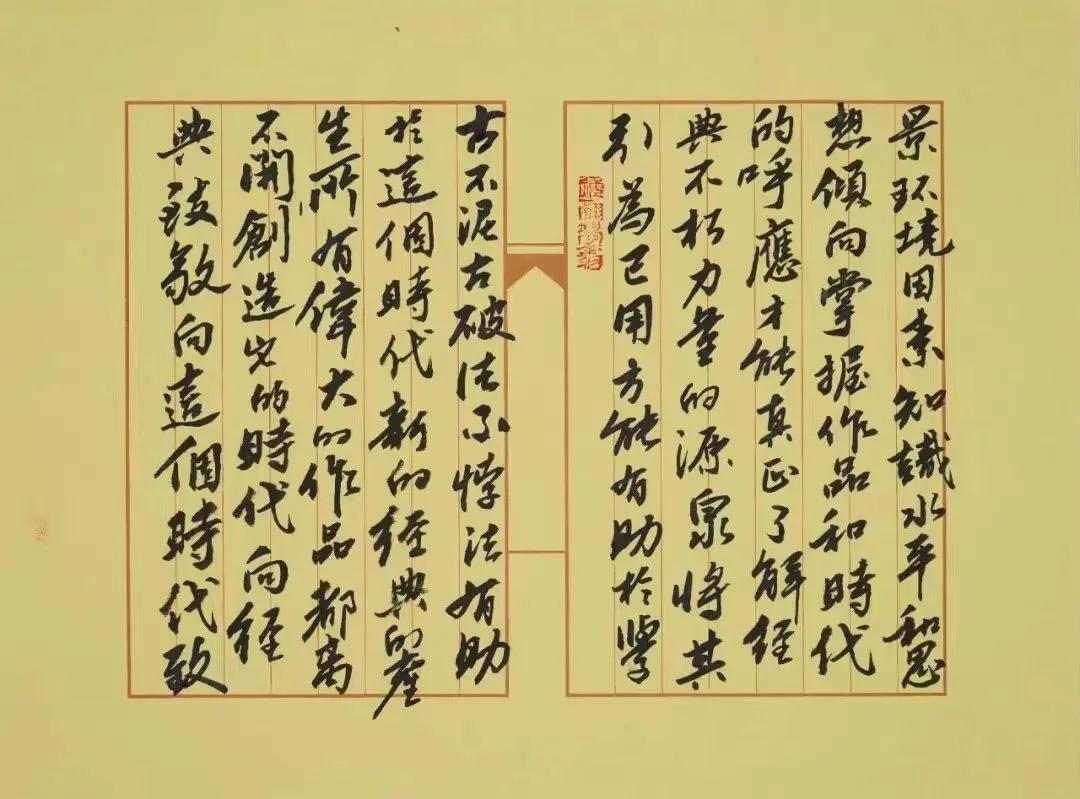 景环境因素知識水平和思
想傾向掌握作品和時代
的呼應才能真正了解經
典不朽力量的源泉將其
引為己用方能有助於學
古不泥古破法不悖法有助
於這個時代新的經典的產
生所有偉大的作品都离
不開創造它的時代向經
典致敬向這個時代致